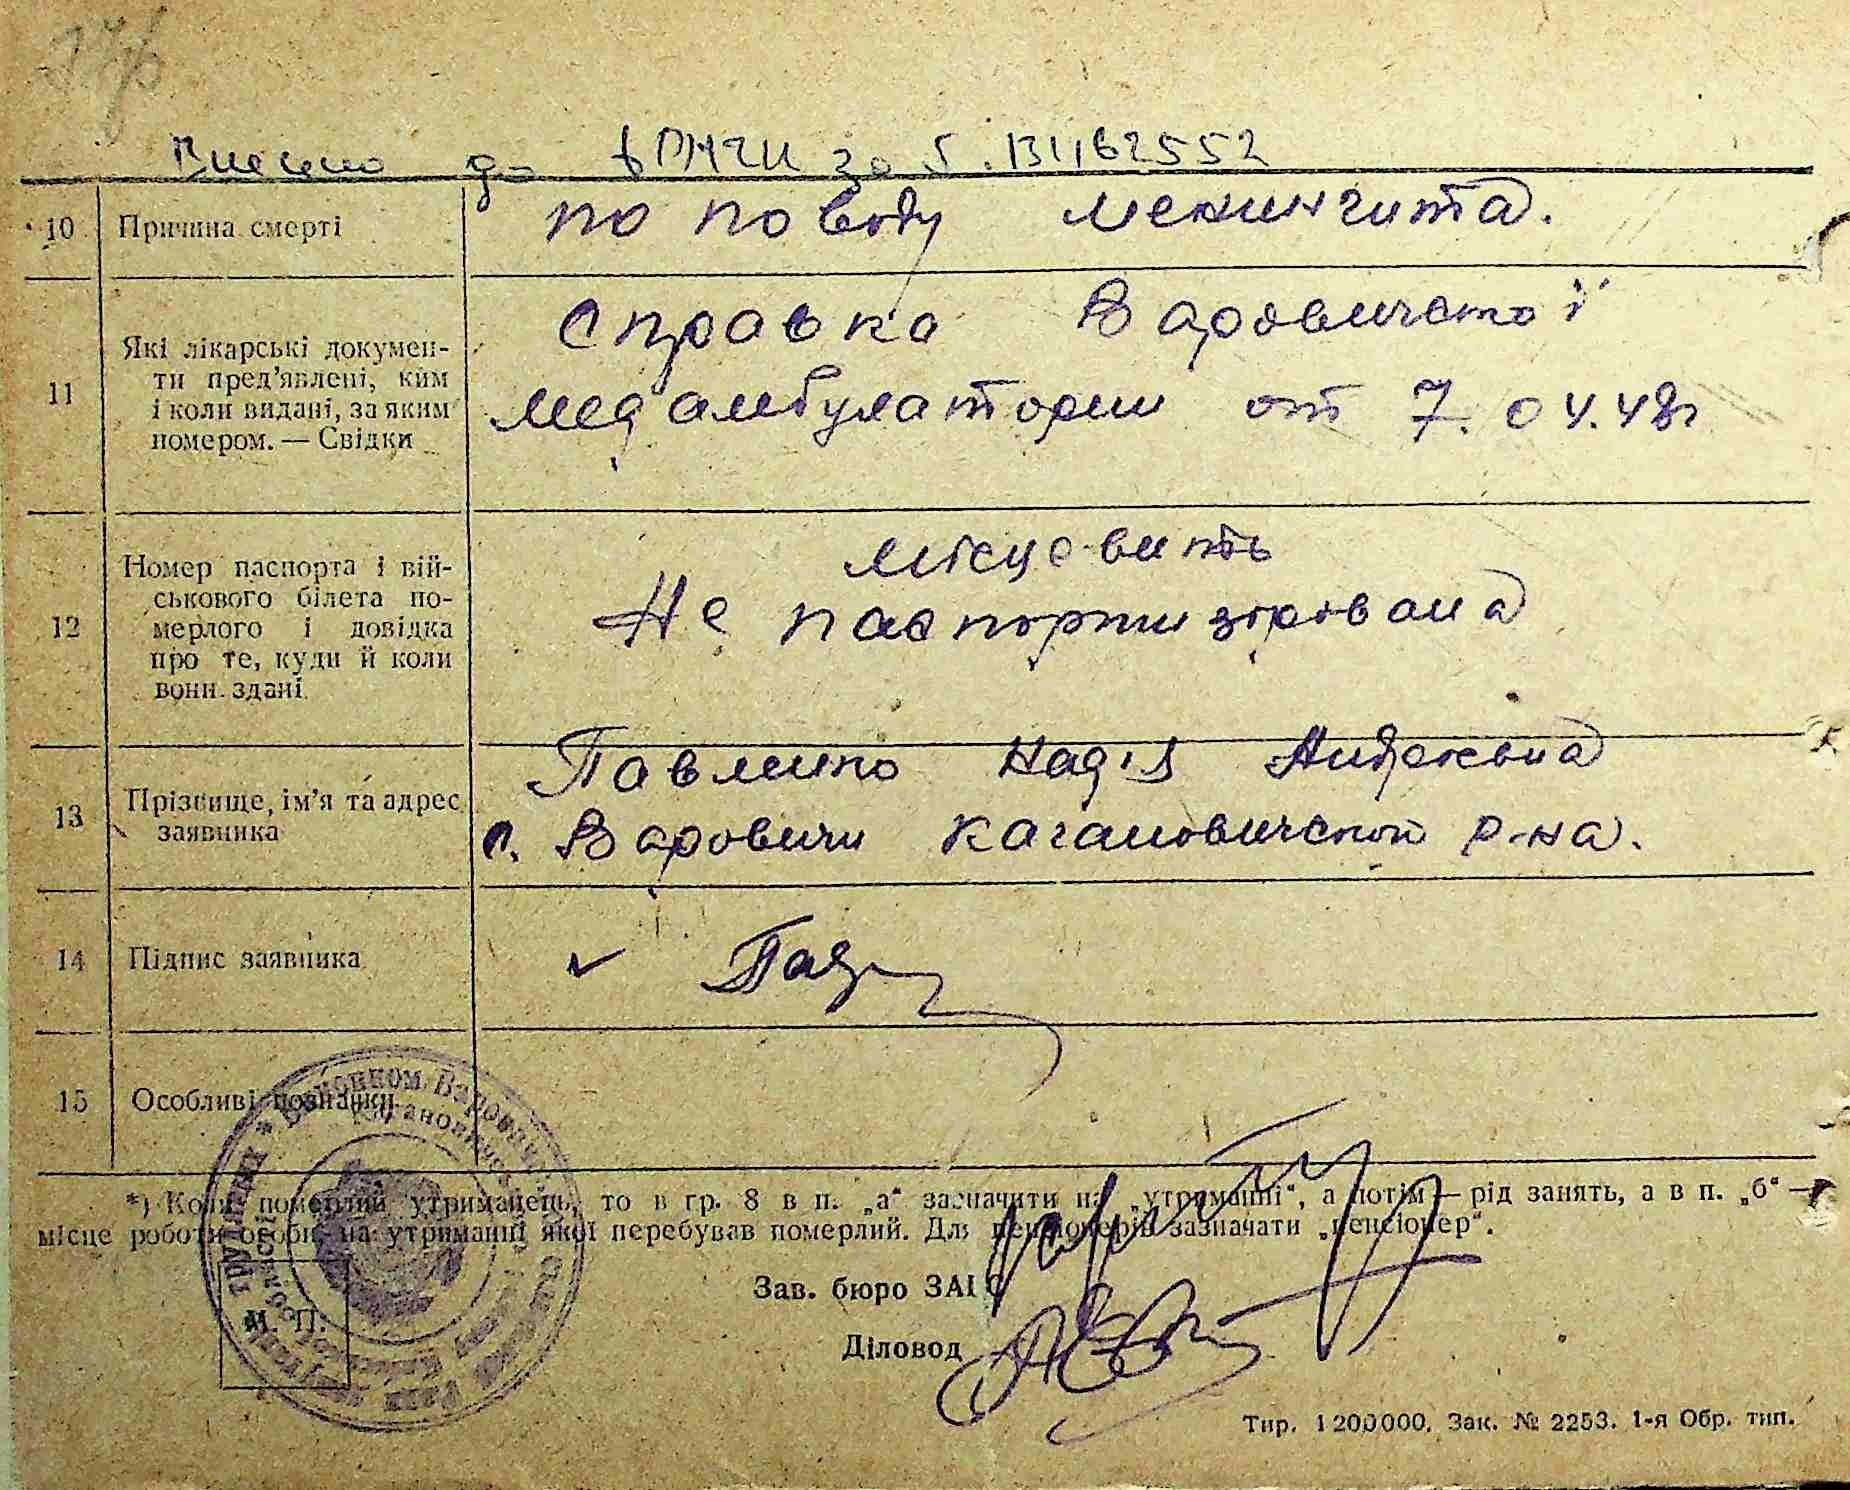 Внесено до
10 Причина смерті по поводу менингита.
11 Які лікарські докумен-
ти пред'явлені, ким
і коли видані, за яким
номером. — Свідки
Справка Варовичской
медамбулатории от 7.04.48г
12 Номер паспорта і вій-
ськового білета по-
мерлого і довідка
про те, куди й коли
вони здані
Не
13 Прізвище, ім'я та адрес
заявника
Павленко Надія
с. Варовичи Кагановичской р-на.
14 Підпис заявника
15 Особливі позначки
*) Коли померлий утриманець, то в гр. 8 в п. „а“ зазначити на „утриманні“, а потім — рід занять, а в п. „б“ —
місце роботи особи, на утриманні якої перебував померлий. Для пенсіонерів зазначати „пенсіонер“.
Зав. бюро ЗАГС
М. П.
Діловод
Тир. 1200000. Зак. № 2253. 1-я Обр. тип.